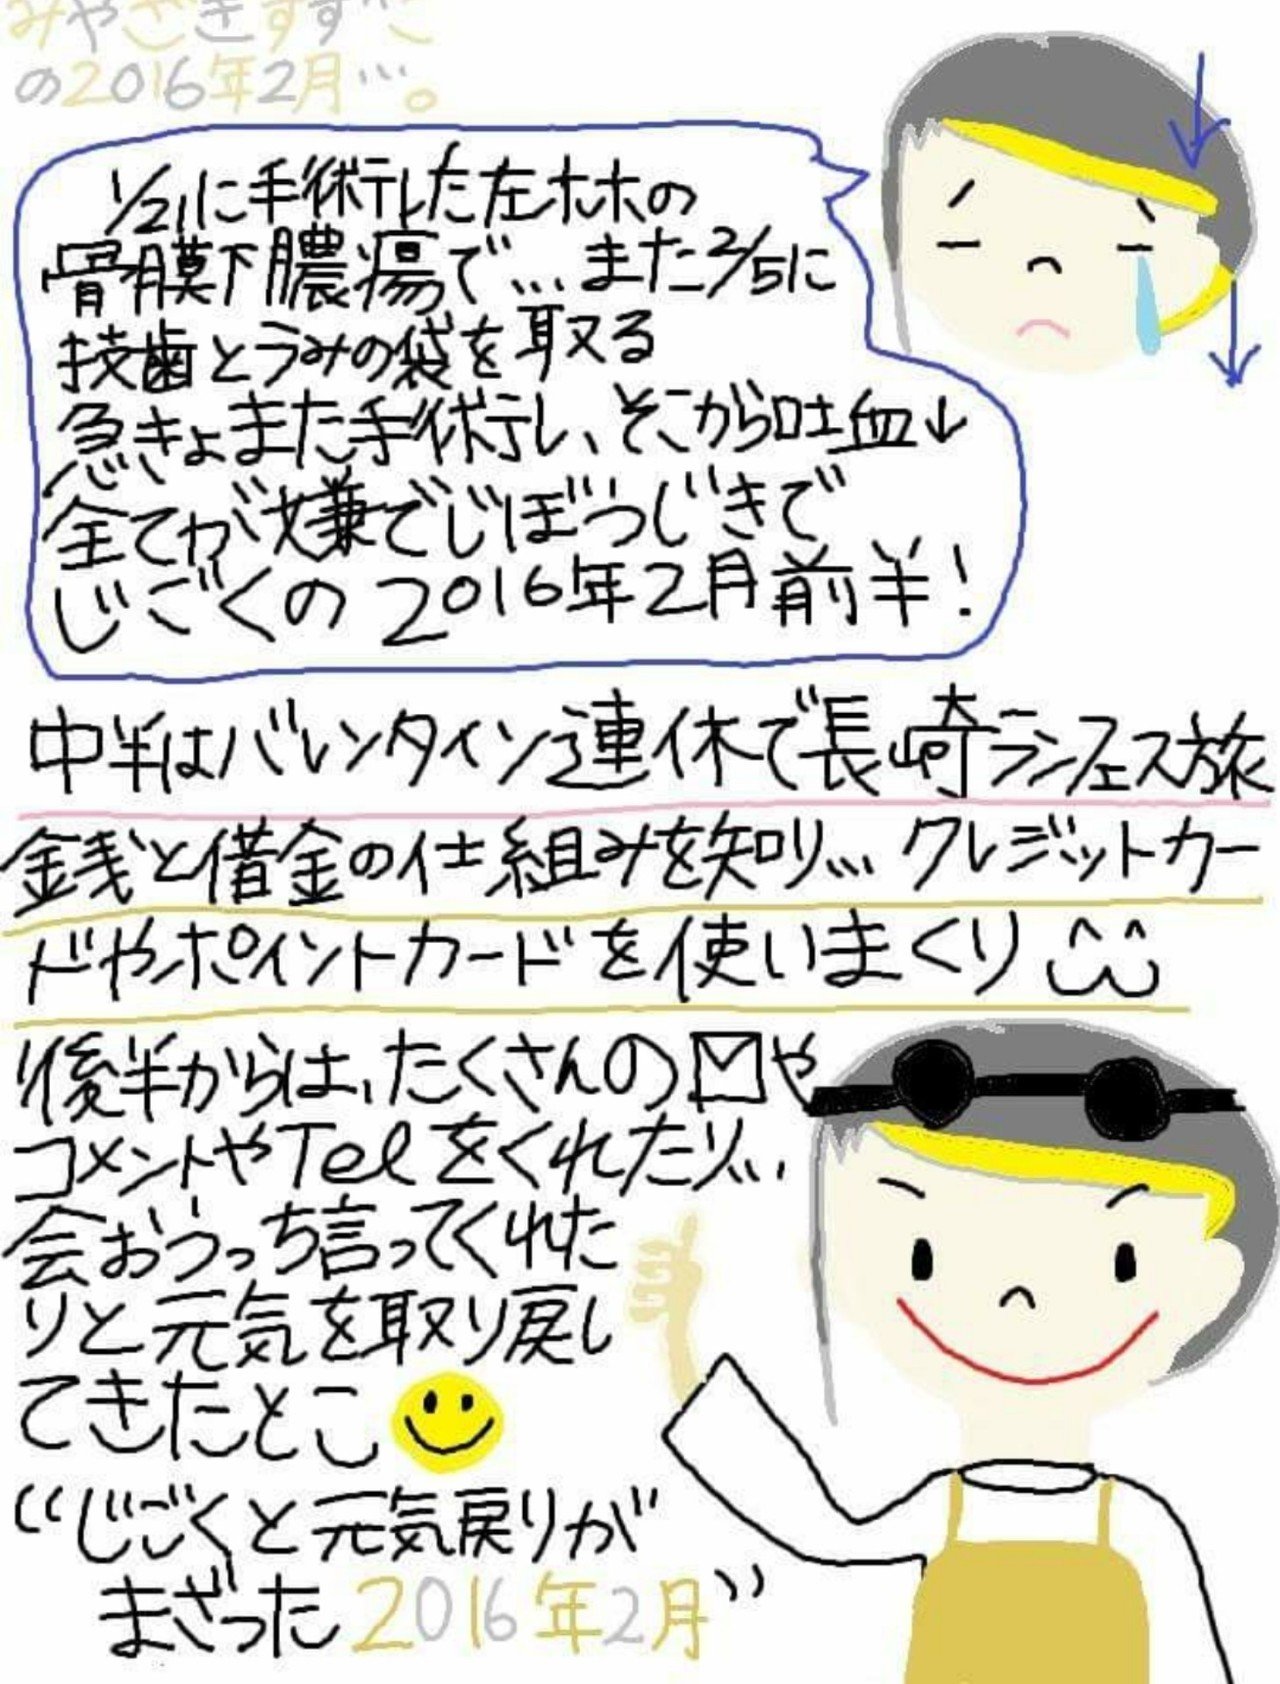 みやざきすずこ
の2016年2月…。
1/21に手術した左ホホの
骨膜下膿瘍で…また2/5に
技歯とうみの袋を取る
急きょまた手術し、そこから吐血↓
全てが嫌でじぼうじきで
じごくの2016年2月前半!
中半はバレンタイン連休で長崎ランフェス旅
金銭と借金の仕組みを知り… クレジットカー
ドやポイントカードを使いまくり
後半からは、たくさんの✉や
コメントやTelをくれたり…
会おうっち言ってくれた
りと元気を取り戻し
てきたとこ
“じごくと元気戻りが
まざった2016年2月”